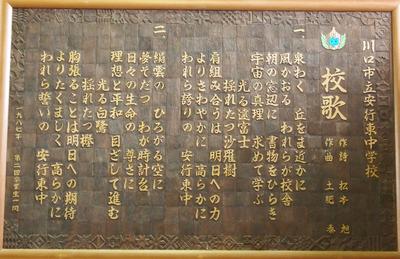 川口市立安行東中学校
校歌
作詩 松本旭
作曲 土肥泰
一、泉わく 丘をま近かに
風かおる われらが校舎
朝の窓辺に 書物をひらき
宇宙の真理 求めて学ぶ
光る遠富士
揺れたつ沙羅樹
肩組み合うは 明日への力
よりさわやかに 高らかに
われら誇りの 安行東中
二、絹雲の ひろがる空に
夢そだつ わが時計台
日々の生命の 尊さに
理想と平和 目ざして進む
光る白鷺
揺れたつ欅
胸張ることは 明日への期待
よりたくましく 高らかに
われら誓いの 安行東中
一九八七年 第二回卒業生一同